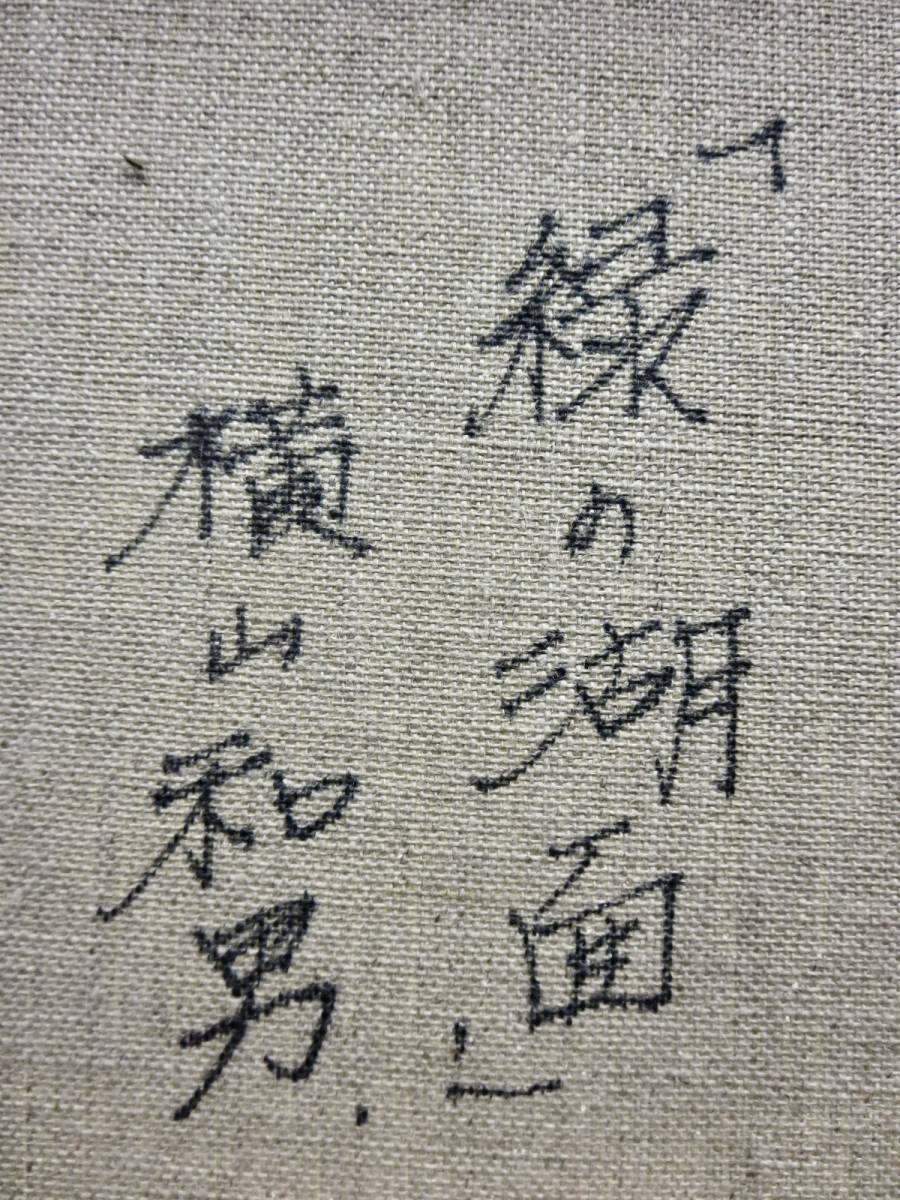 「緑の湖面」
横山和男.